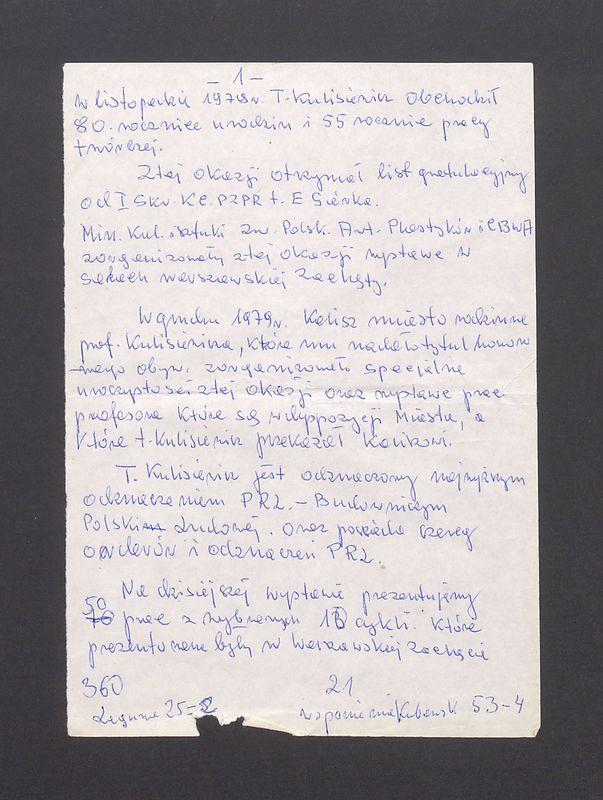 - 1 -
W listopadzie 1979 r. T. Kulisiewicz obchodził
80. rocznicę urodzin i 55 rocznicę pracy
twórczej.
Z tej okazji otrzymał list gratulacyjny
od I Skr. KC. PZPR t. E Gierka.
Min. Kul. i Sztuki zw. Polsk. Art. Plastyków i CBWA
zorganizowały z tej okazji wystawę w
salach warszawskiej Zachęty.
W grudniu 1979 r. Kalisz miasto rodzinne
prof. Kulisiewicza, które mu nadało tytuł honoro
-wego obyw. zorganizowało specjalne
uroczystości z tej okazji oraz wystawę prac
profesora które są w dyspozycji Miasta, a
które t. Kulisiewicz przekazał Kaliszowi.
T. Kulisiewicz jest odznaczony najwyższym
odznaczeniem PRL. - Budowniczym
Polski Ludowej. Oraz posiada szereg
orderów i odznaczeń PRL.
Na dzisiejszej wystawie prezentujemy
50 prac z wybranych cykli. Które
prezentowane były w Warszawskiej Zachęcie
360 21
25-2 53-4